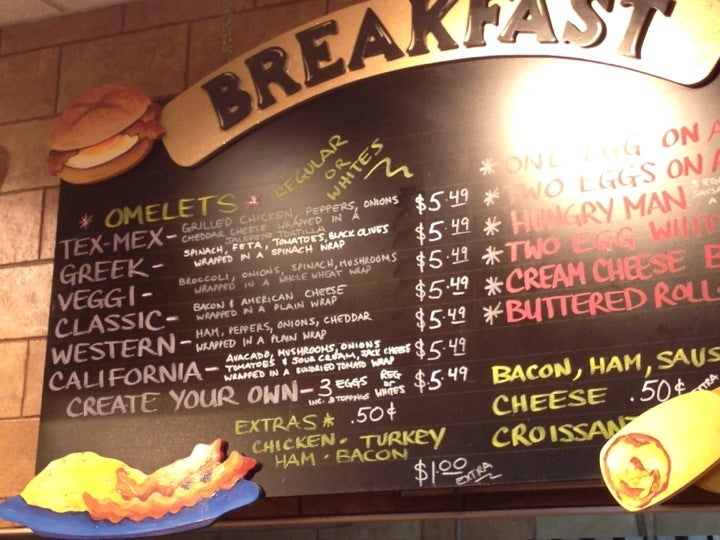 BREAKFAST
* OMELETS * REGULAR
OR
WHITES
TEX-MEX - GRILLED CHICKEN, PEPPERS, ONIONS
CHEDDAR CHEESE WRAPPED IN A
JALEPENO TORTILLA $5.49
GREEK - SPINACH, FETA, TOMATOES, BLACK OLIVES
WRAPPED IN A SPINACH WRAP $5.49
VEGGI - BROCCOLI, ONIONS, SPINACH, MUSHROOMS
WRAPPED IN A WHOLE WHEAT WRAP $5.49
CLASSIC - BACON & AMERICAN CHEESE
WRAPPED IN A PLAIN WRAP $5.49
WESTERN - HAM, PEPPERS, ONIONS, CHEDDAR
WRAPPED IN A PLAIN WRAP $5.49
CALIFORNIA - AVACADO, MUSHROOMS, ONIONS
TOMATOES & SOUR CREAM, JACK CHEESE
WRAPPED IN A SUNDRIED TOMATO WRAP $5.49
CREATE YOUR OWN - 3 EGGS REG OR WHITES
INC. 3 TOPPINGS $5.49
EXTRAS * .50¢
CHICKEN - TURKEY
HAM - BACON
$1.00 EXTRA
* ONE EGG ON A
* TWO EGGS ON A
* HUNGRY MAN 3 EGG
* TWO EGG WHIT
* CREAM CHEESE B
* BUTTERED ROLL
BACON, HAM, SAUS
CHEESE .50¢ EXTRA
CROISSAN